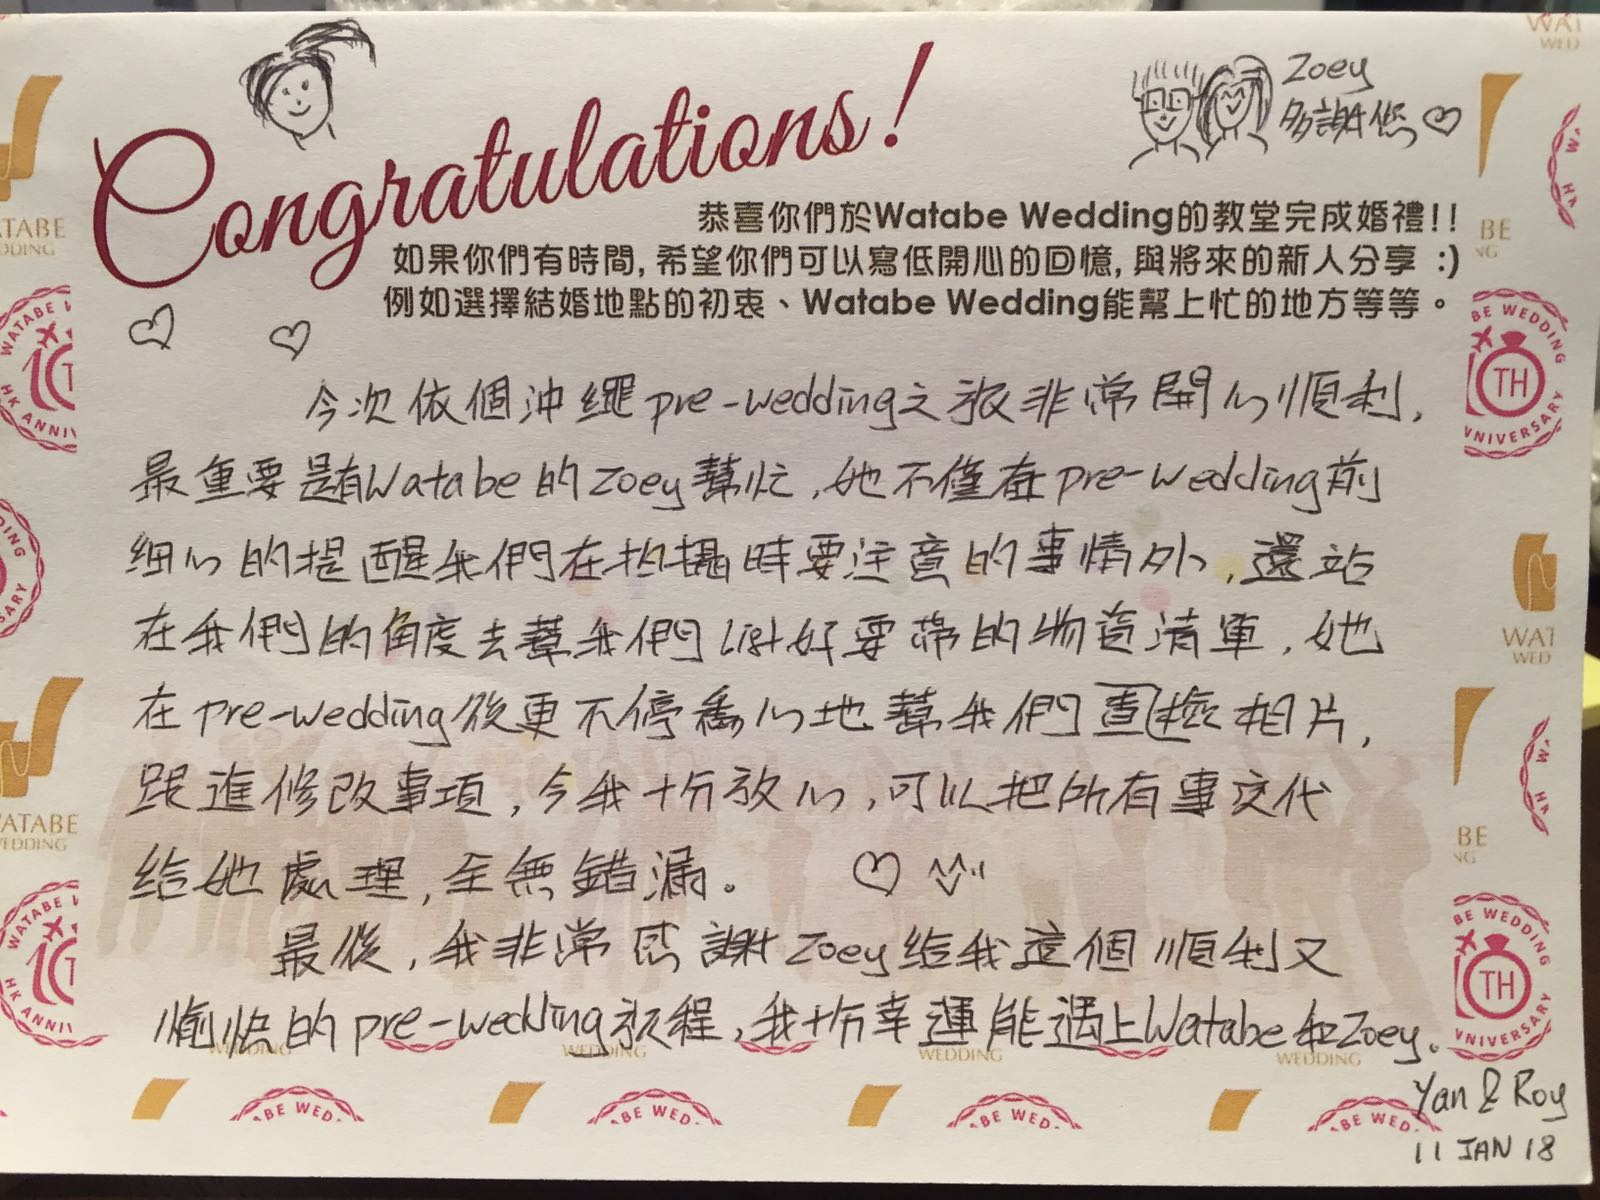 Congratulations!
Zoey
多謝您
恭喜你們於Watabe Wedding的教堂完成婚禮!!
如果你們有時間, 希望你們可以寫低開心的回憶, 與將來的新人分享 :)
例如選擇結婚地點的初衷、Watabe Wedding能幫上忙的地方等等。
今次依個沖繩pre-wedding之旅非常開心順利,
最重要是有Watabe的Zoey幫忙,她不僅在pre-wedding前
細心的提醒我們在拍攝時要注意的事情外,還站
在我們的角度去幫我們List好要帶的物資清單,她
在pre-wedding後更不停番心地幫我們查檢相片,
跟進修改事項,令我十份放心,可以把所有事交代
給她處理,至無錯漏。
最後,我非常感謝Zoey給我這個順利又
愉快的pre-wedding旅程,我十份幸運能遇上Watabe和Zoey。
Yan & Roy
11 JAN 18
WATABE WEDDING
HK ANNIVERSARY
10TH